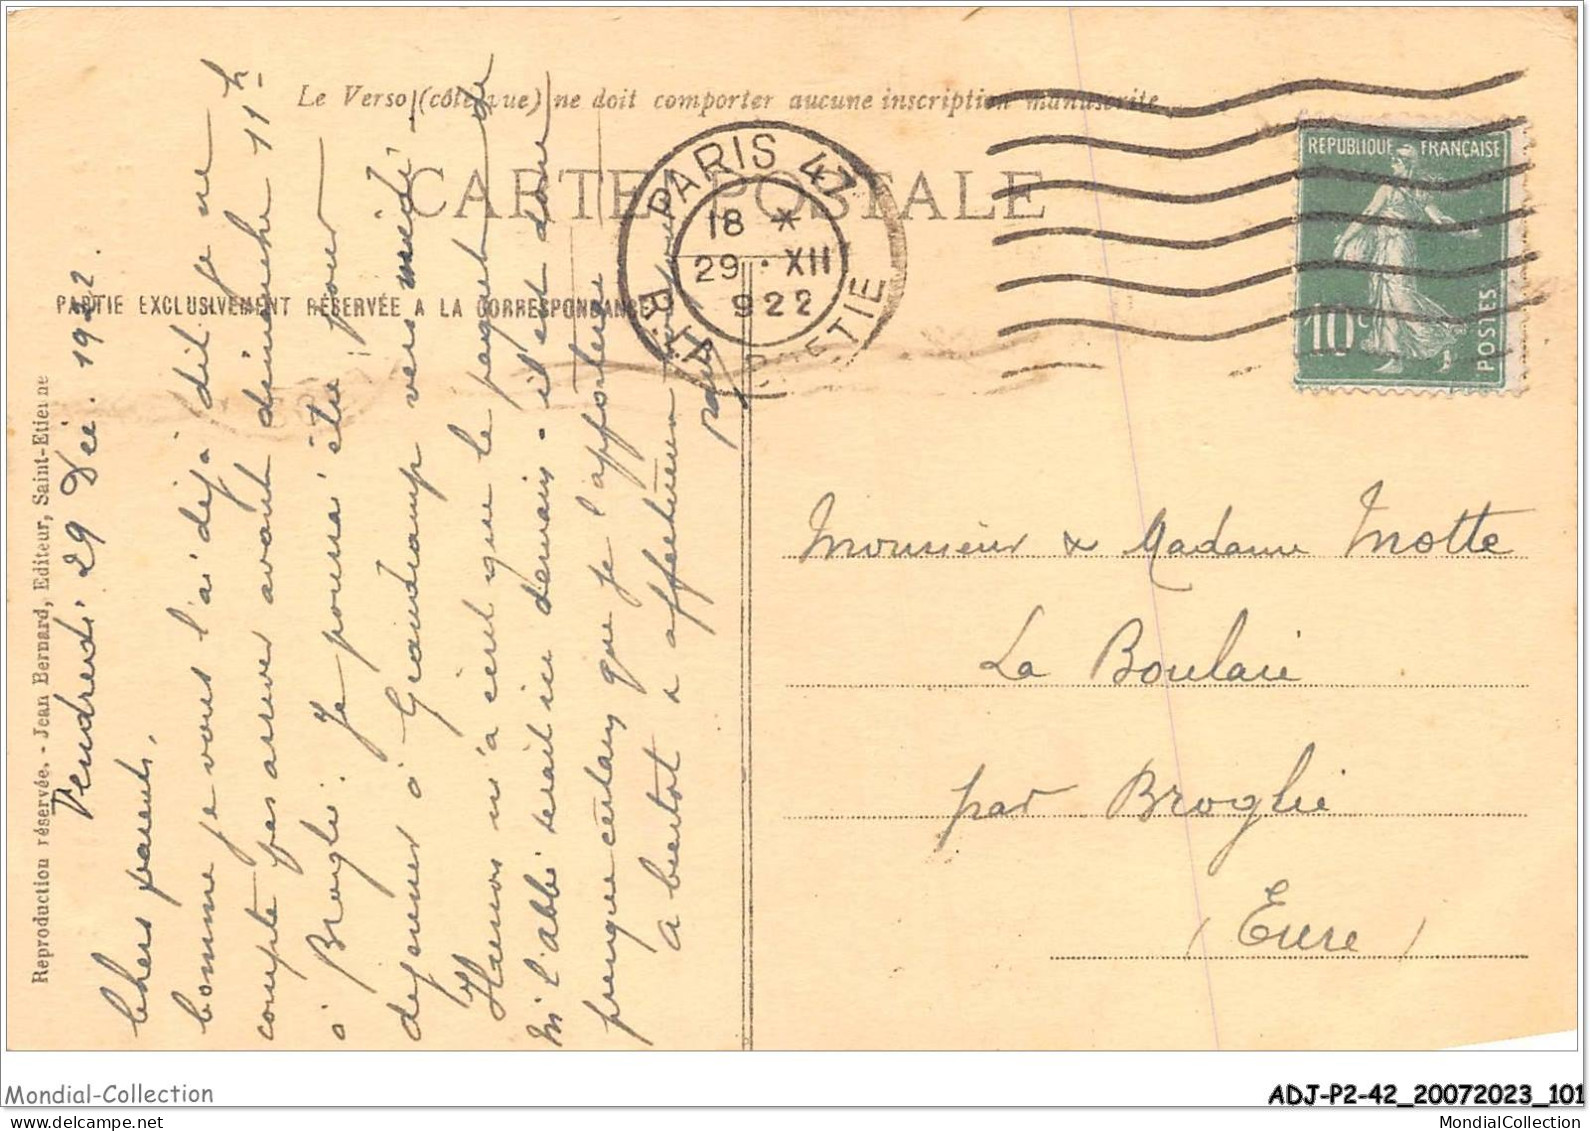 Le Verso (côté vue) ne doit comporter aucune inscription manuscrite
CARTE POSTALE
PARTIE EXCLUSIVEMENT RÉSERVÉE A LA CORRESPONDANCE
Reproduction réservée. - Jean Bernard, Editeur, Saint-Etienne
Vendredi 29 Déc. 1922.
Chers parents,
comme je vous l'ai déjà dit je ne
compte pas arriver avant dimanche 11h-
à Broglie. Je pourrai être pour
déjeuner à Grandchamp vers midi -
m'a écrit que le paquet de
M l'abbé serait ici demain - il est donc
presque certain que je l'apporterai
A bientôt & affectueux
PARIS 47
18 *
29 · XII
922
R. LA BOETIE
REPUBLIQUE FRANÇAISE
10c
POSTES
Monsieur & Madame Motte
La Boulaie
par Broglie
(Eure)
Mondial-Collection
ADJ-P2-42_20072023_101
MondialCollection